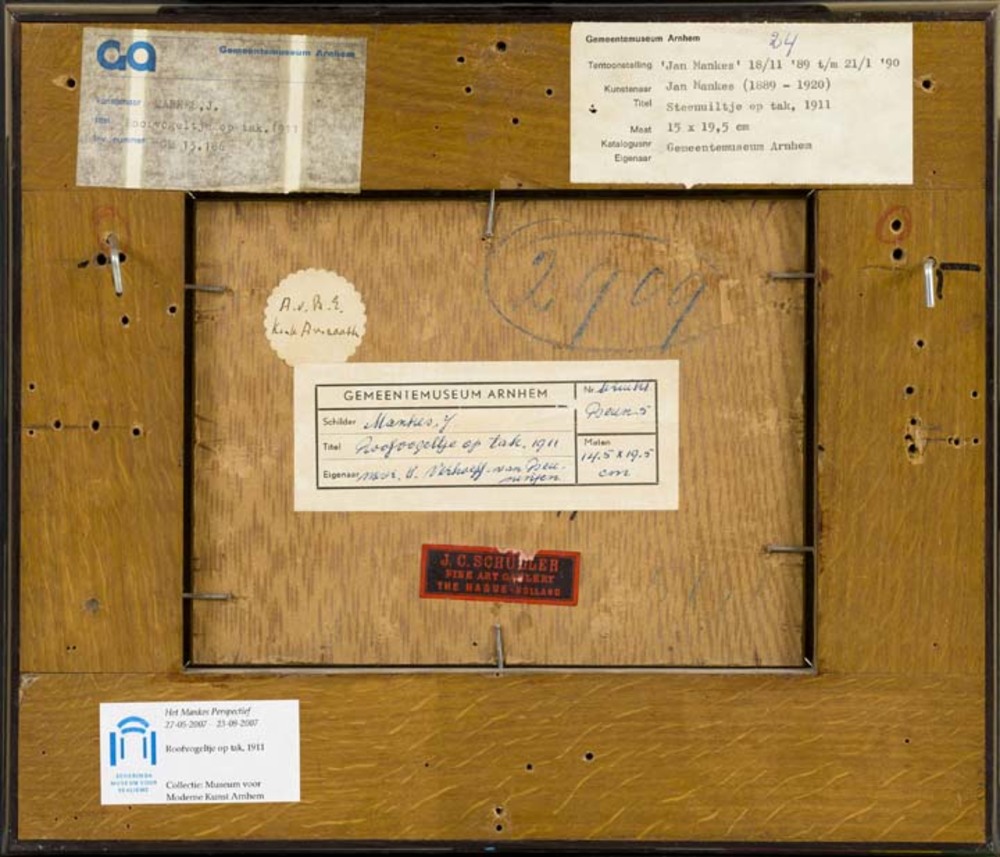 GA Gemeentemuseum Arnhem
kunstenaar MANKES, J.
titel Roofvogeltje op tak, 1911
inv. nummer GM 15.166
Gemeentemuseum Arnhem 24
Tentoonstelling 'Jan Mankes' 18/11 '89 t/m 21/1 '90
Kunstenaar Jan Mankes (1889 - 1920)
Titel Steenuiltje op tak, 1911
Maat 15 x 19,5 cm
Katalogusnr Gemeentemuseum Arnhem
Eigenaar
2909
A.v.B.E.
GEMEENTEMUSEUM ARNHEM
Schilder Mankes, J
Titel Roofvogeltje op tak, 1911
Eigenaar mevr. Verhoeff-van Beu-
ningen
Nr.
Beun. 5
Maten
14.5 x 19.5
cm
J. C. SCHÜLLER
FINE ART GALLERY
THE HAGUE-HOLLAND
Het Mankes Perspectief
27-05-2007 - 23-09-2007
Roofvogeltje op tak, 1911
Collectie: Museum voor
Moderne Kunst Arnhem
SCHERINGA
MUSEUM VOOR
REALISME